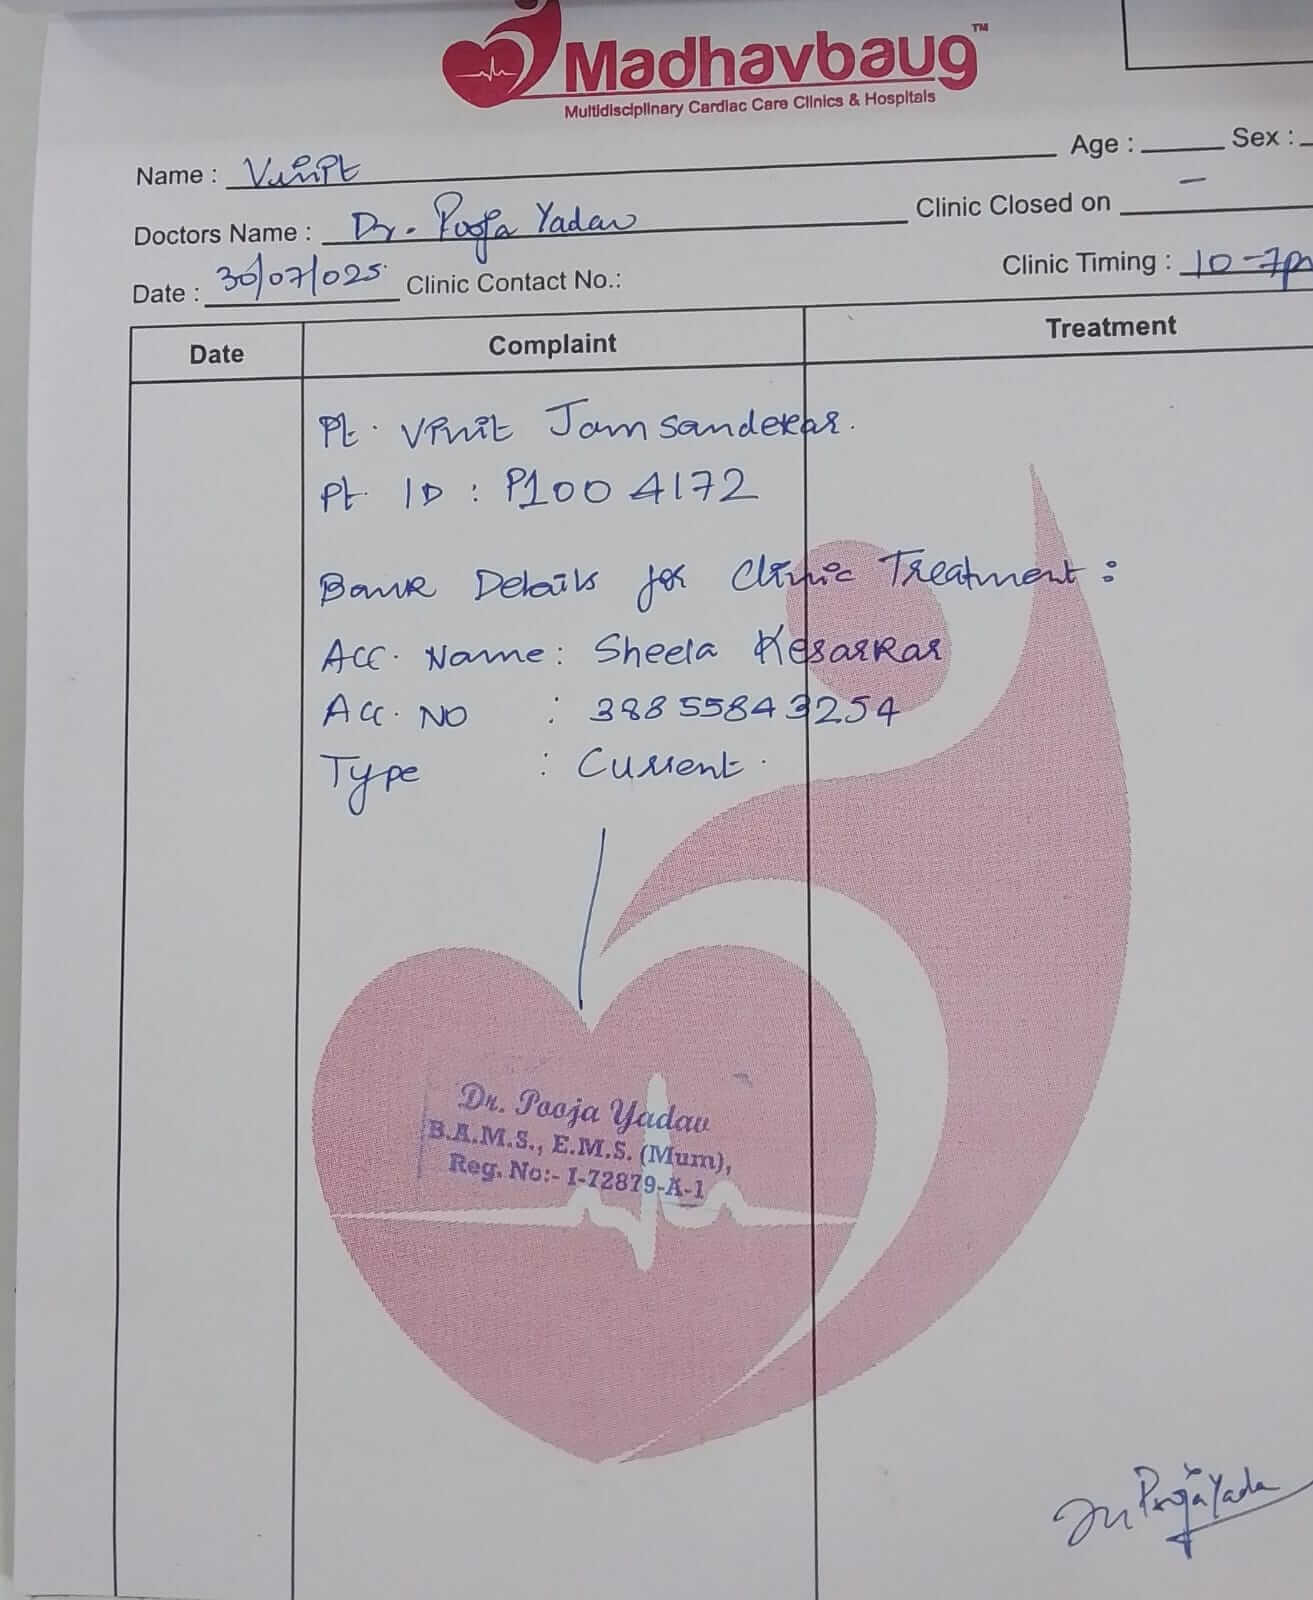 Madhavbaug™
Multidisciplinary Cardiac Care Clinics & Hospitals
Name : Vinit Age : Sex :
Doctors Name : Dr. Pooja Yadav Clinic Closed on -
Date : 30/07/025 Clinic Contact No.: Clinic Timing : 10-7pm
Date Complaint Treatment
Pt. Vinit Jamsandekar.
Pt ID : P1004172
Bank Details for Clinic Treatment :
Acc. Name : Sheela Kesarkar
Acc. No : 38855843254
Type : Current.
Dr. Pooja Yadav
B.A.M.S., E.M.S. (Mum),
Reg. No:- I-72879-A-1